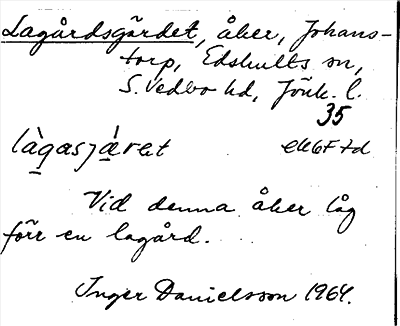 Lagårdsgärdet, åker, Johans-
torp, Edshults sn,
S. Vedbo hd, Jönk. l.
35
Vid denna åker låg
förr en lagård.
Inger Danielsson 1964.